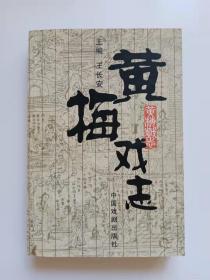 主编 王长安
黄梅戏志
中国戏剧出版社